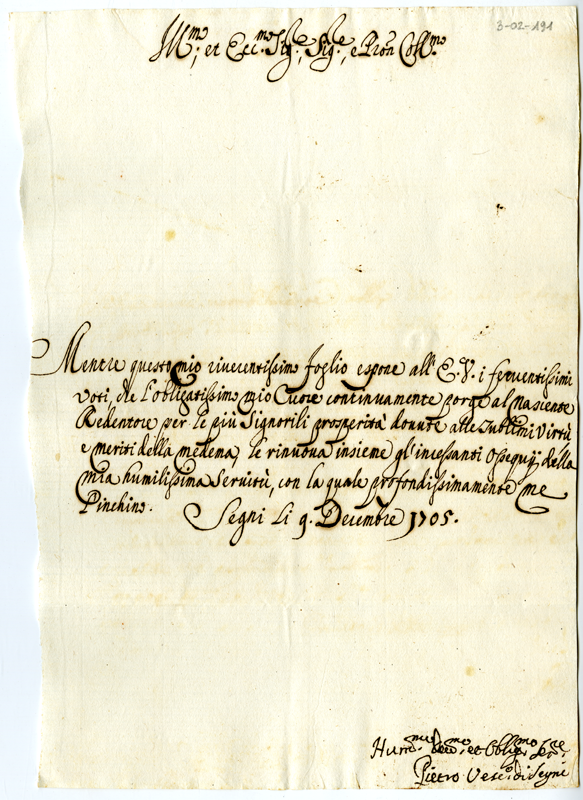 3-02-191
Ill.mo et Ecc.mo Sig.re, Sig.re, e Pron Coll.mo
Mentre questo mio riverentissimo foglio espone all'E.V. i ferventissimi
voti, che l'obligatissimo mio Cuore continuamente porge al nascente
Redentore per le più Signorili prosperità dovute alle sublimi virtù
e meriti della medema, le rinuova insieme gl'incessanti ossequij della
mia humilissima servitù, con la quale profondissimamente me
l'inchino.
Segni li 9. Decembre 1705.
Hum.mo Dev.mo et Oblig.mo Se.re
Pietro Vesc.o di Segni